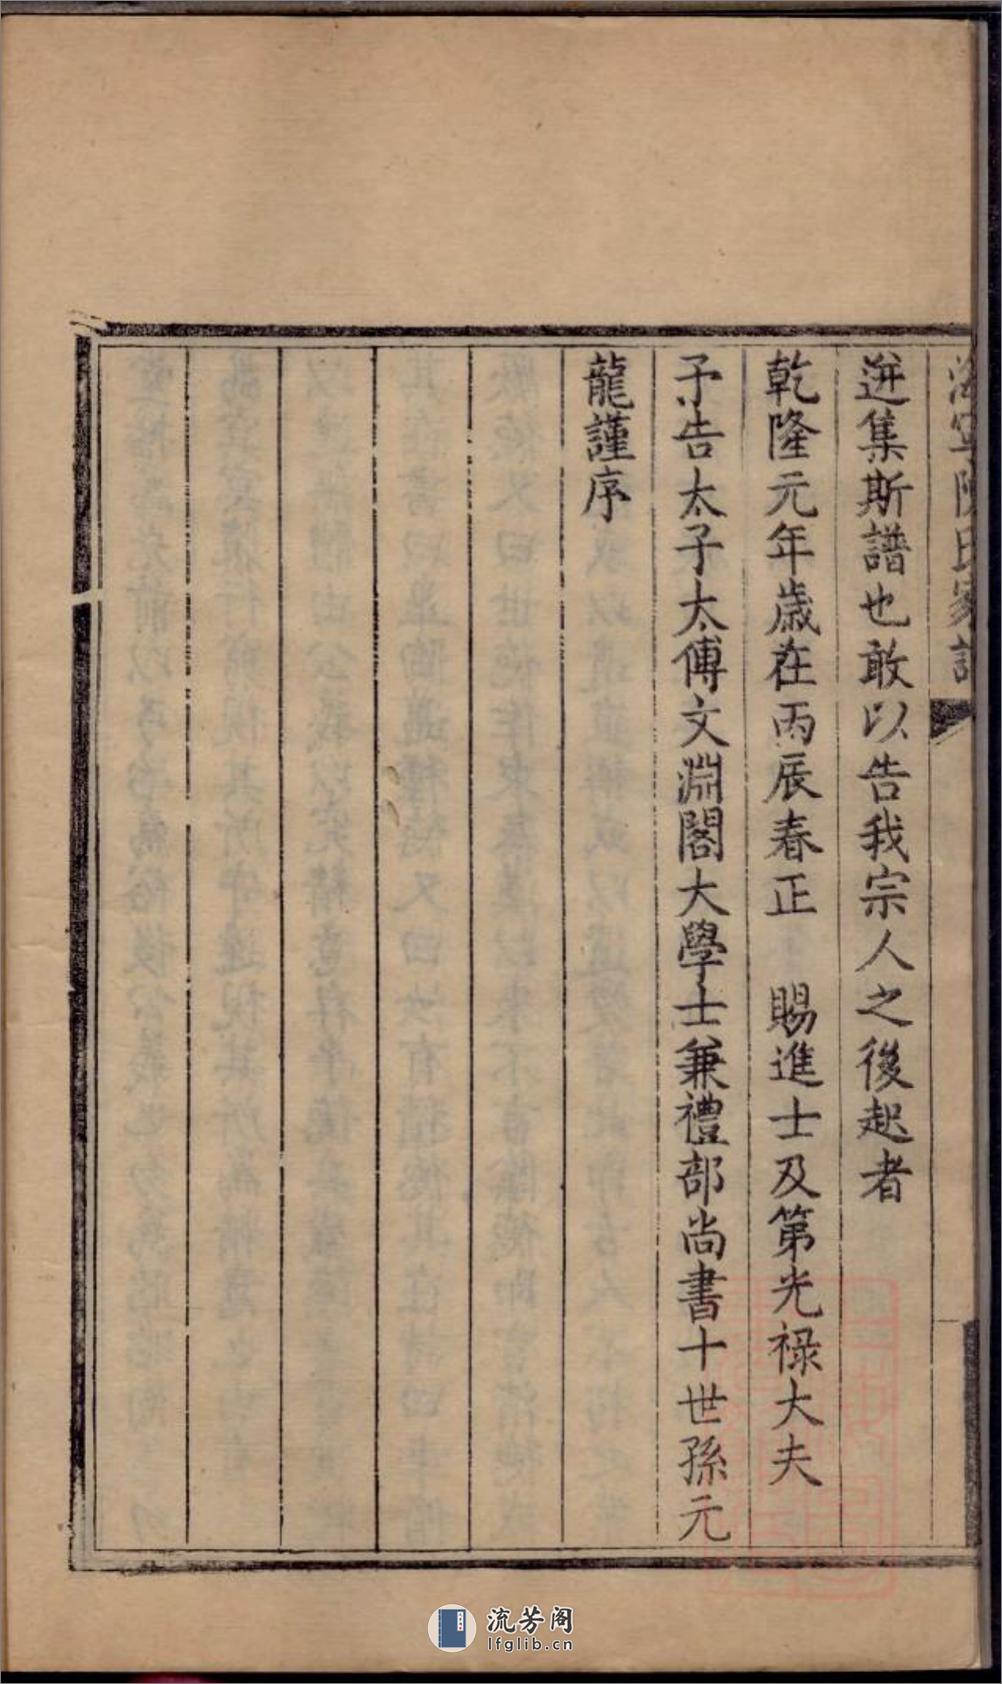 海寧陳氏家譜
迸集斯譜也敢以告我宗人之後起者
乾隆元年歲在丙辰春正　賜進士及第光祿大夫
予告太子太傅文淵閣大學士兼禮部尚書十世孫元
龍謹序
流芳阁
lfglib.cn